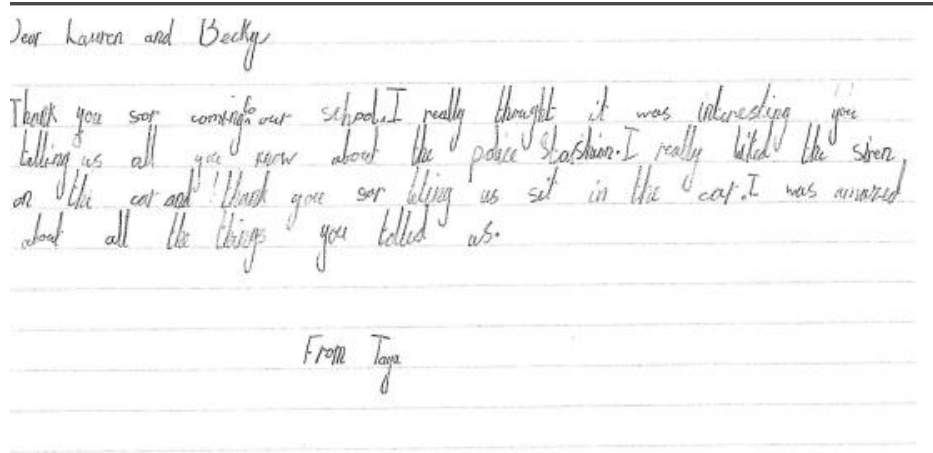 Dear Lauren and Becky
Thank you sor coming to our school. I really thought it was interesting you
telling us all you know about the police Staishion. I really liked the siren
on the car and ! thank you sor leting us sit in the car. I was amazed
about all the things you telled us.
From Taya